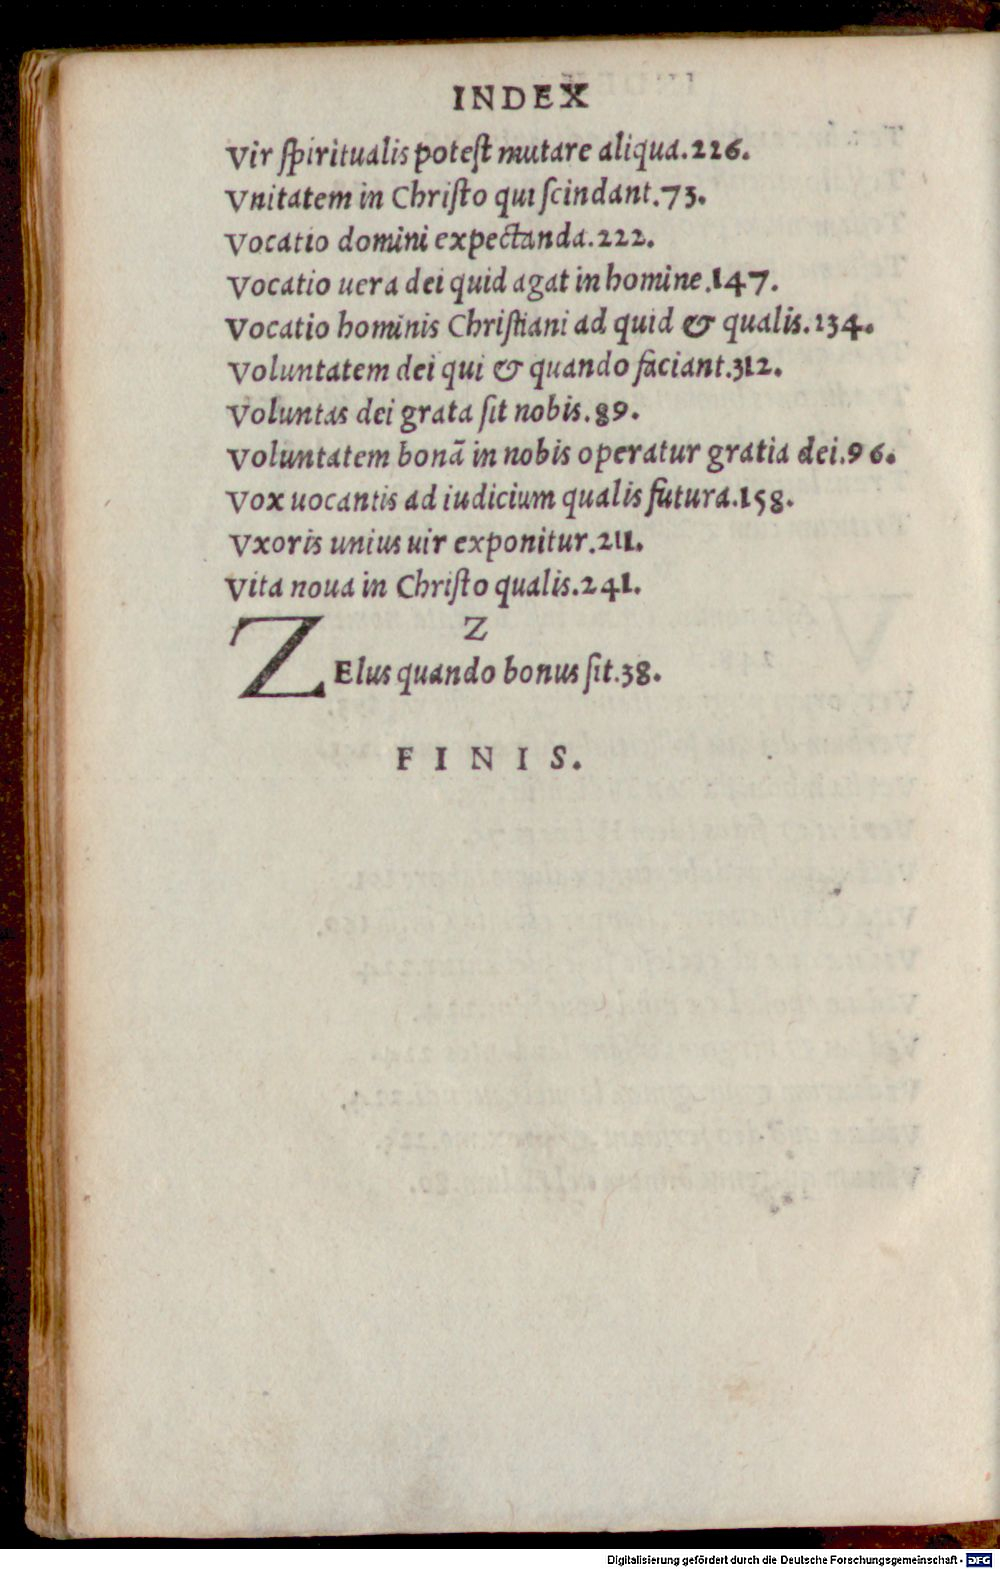 INDEX
Vir ſpiritualis poteſt mutare aliqua.226.
Vnitatem in Chriſto qui ſcindant.73.
Vocatio domini expectanda.222.
Vocatio uera dei quid agat in homine.147.
Vocatio hominis Chriſtiani ad quid & qualis.134.
Voluntatem dei qui & quando faciant.312.
Voluntas dei grata ſit nobis.89.
Voluntatem bonã in nobis operatur gratia dei.96.
Vox uocantis ad iudicium qualis futura.158.
Vxoris unius uir exponitur.211.
Vita noua in Chriſto qualis.241.
Z
ZElus quando bonus ſit.38.
FINIS.
Digitalisierung gefördert durch die Deutsche Forschungsgemeinschaft - DFG